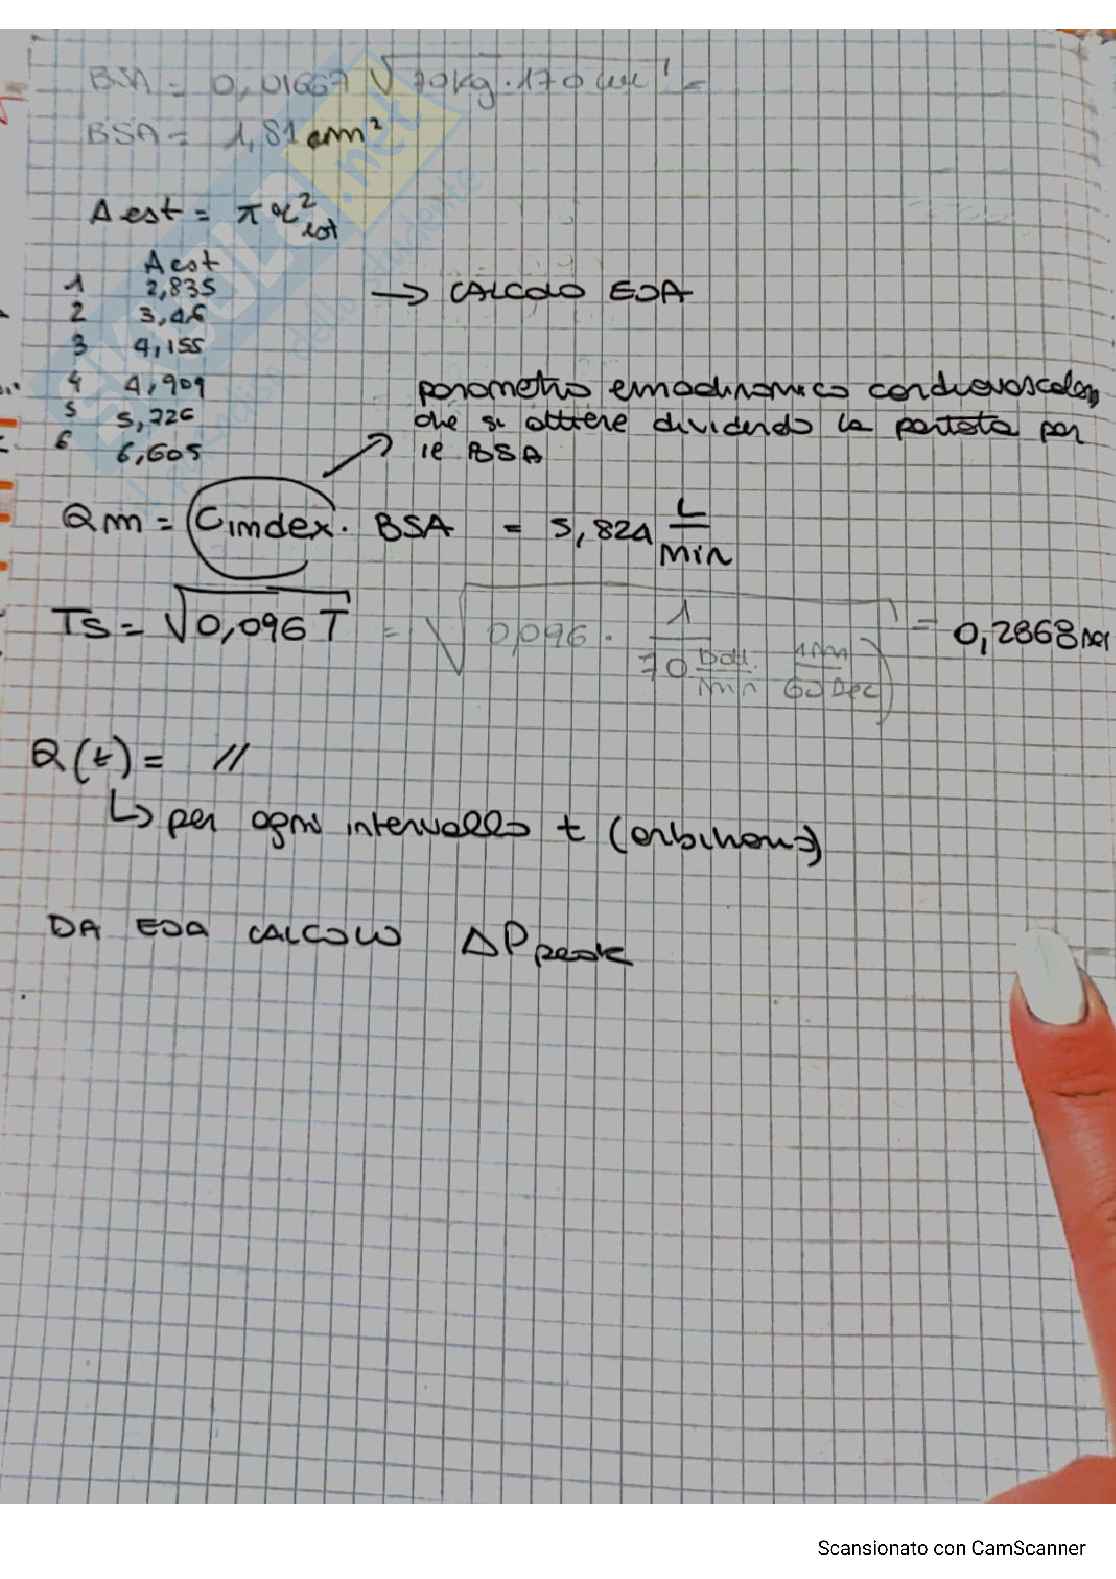 BSA = 0,01667 √70kg · 170 cm =
BSA = 1,81 cm²
A est = π r² tot
A est
1 2,835
2 3,46
3 4,155
4 4,909
5 5,726
6 6,605
→ CALCOLO EOA
parametro emodinamico cardiovascolare
che si ottiene dividendo la portata per
la BSA
Qm = Cindex · BSA = 5,824 L/min
Ts = √0,096 T = √(0,096 · 1/(70 batt./min · 1min/60 sec)) = 0,2868 sec
Q(t) = //
↳ per ogni intervallo t (arbitrario)
DA EOA CALCOLO ΔPpeak
SKUOLA.net
Scansionato con CamScanner